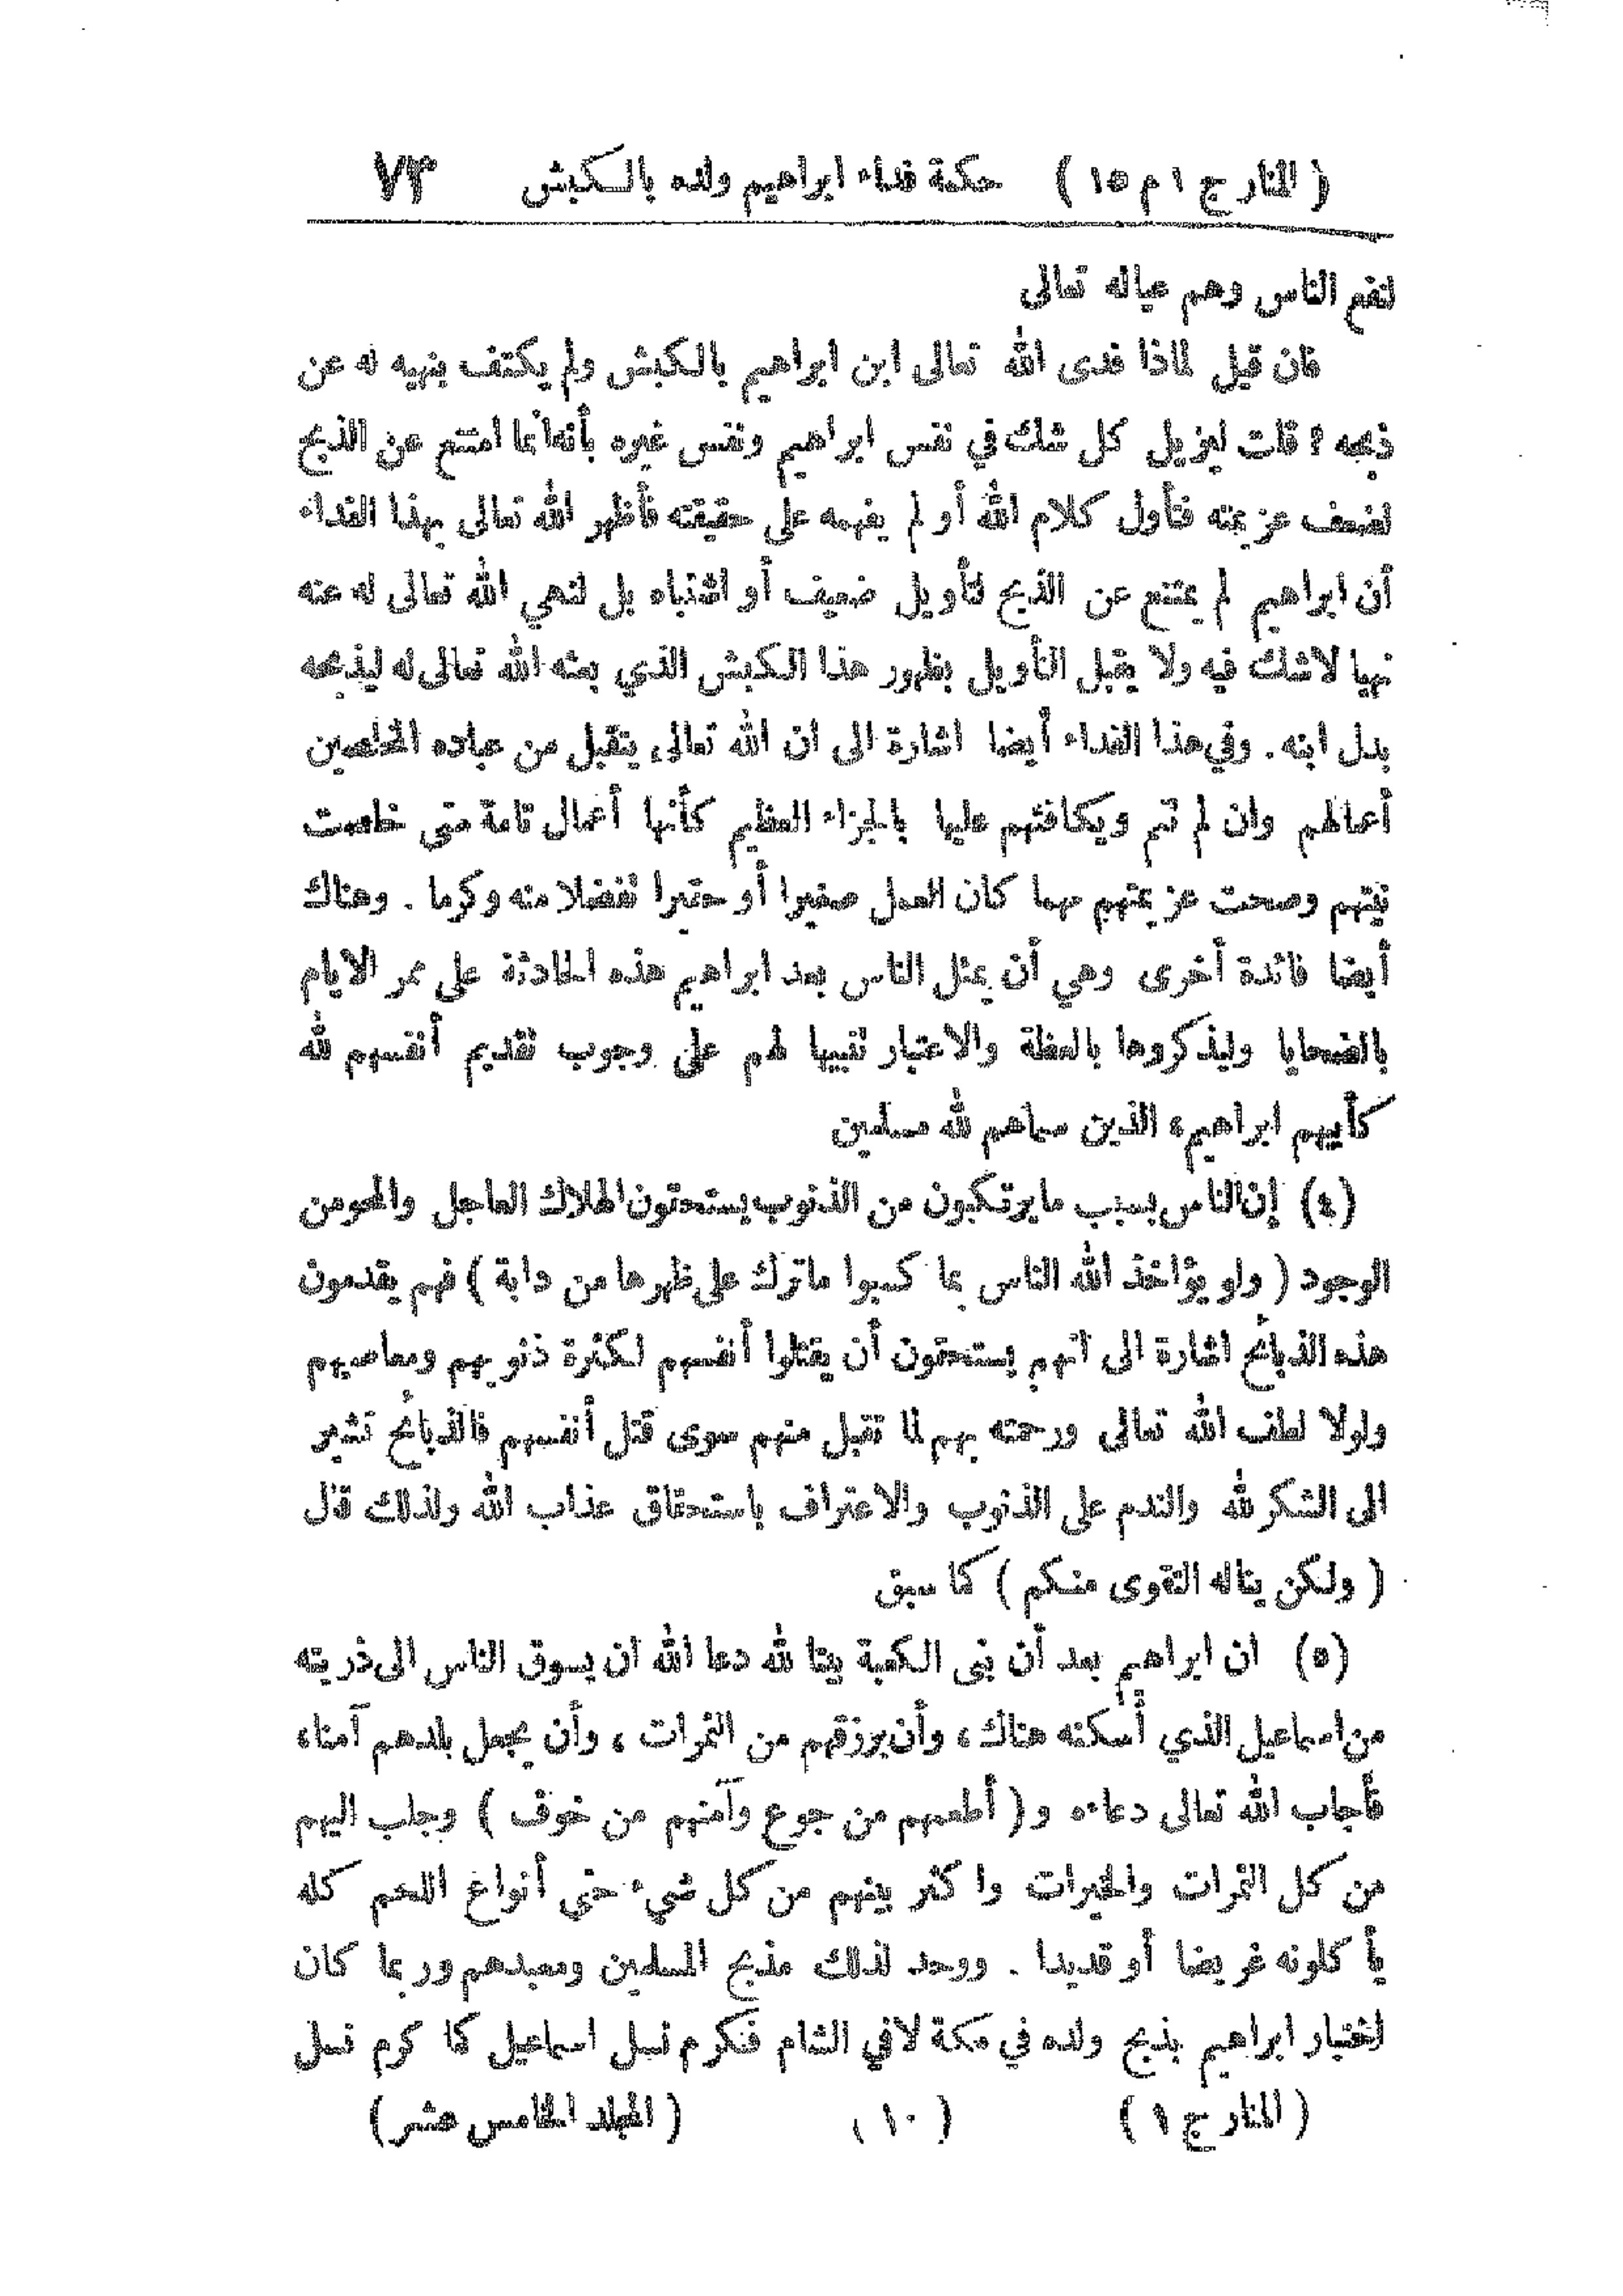 ( المنار ج ١ م ١٥ ) حكمة فداء ابراهيم ولده بالكبش ٧٣
لنفع الناس وهم عياله تعالى
فان قيل لماذا فدى الله تعالى ابن ابراهيم بالكبش ولم يكتف بنهيه له عن
ذبحه ؟ قلت ليزيل كل شك في نفس ابراهيم ونفس غيره بأنه انما امتنع عن الذبح
لضعف عزيمته فأول كلام الله أو لم يفهمه على حقيقته فأظهر الله تعالى بهذا الفداء
أن ابراهيم لم يمتنع عن الذبح لتأويل ضعيف أو اشتباه بل لنهي الله تعالى له عنه
نهيا لاشك فيه ولا يقبل التأويل بظهور هذا الكبش الذي بعثه الله تعالى له ليذبحه
بدل ابنه . وفي هذا الفداء أيضا اشارة الى ان الله تعالى يتقبل من عباده المخلصين
أعمالهم وان لم تتم ويكافئهم عليها بالجزاء العظيم كأنها أعمال تامة متى خلصت
نيتهم وصحت عزيمتهم مهما كان العمل صغيرا أو حقيرا تفضلا منه وكرما . وهناك
أيضا فائدة أخرى وهي أن يمثل الناس بعد ابراهيم هذه الحادثة على ممر الايام
بالضحايا وليذكروها بالعظة والاعتبار تنبيها لهم على وجوب تقديم أنفسهم لله
كأبيهم ابراهيم، الذين سماهم لله مسلمين
(٤) إن الناس بسبب ما يرتكبون من الذنوب يستحقون الهلاك العاجل والمحو من
الوجود ( ولو يؤاخذ الله الناس بما كسبوا ما ترك على ظهرها من دابة ) فهم يقدمون
هذه الذبائح اشارة الى انهم يستحقون أن يقتلوا أنفسهم لكثرة ذنوبهم ومعاصيهم
ولولا لطف الله تعالى ورحمته بهم لما تقبل منهم سوى قتل أنفسهم فالذبائح تشير
الى الشكر لله والندم على الذنوب والاعتراف باستحقاق عذاب الله ولذلك قال
( ولكن يناله التقوى منكم ) كما سبق
(٥) ان ابراهيم بعد أن بنى الكعبة بيتا لله دعا الله ان يسوق الناس الى ذريته
من اسماعيل الذي أسكنه هناك، وأن يرزقهم من الثمرات ، وأن يجعل بلدهم آمنا،
فأجاب الله تعالى دعاءه و ( أطعمهم من جوع وآمنهم من خوف ) وجلب اليهم
من كل الثمرات والخيرات واكثر بينهم من كل شيء حتى أنواع اللحم كله
يأكلونه غريضا أو قديدا . ووحد لذلك مذبح المسلمين ومعبدهم وربما كان
اختبار ابراهيم بذبح ولده في مكة لا في الشام فتكرم نسل اسماعيل كما كرم نسل
( المنار ج ١ ) ( ١٠ ) ( المجلد الخامس عشر )